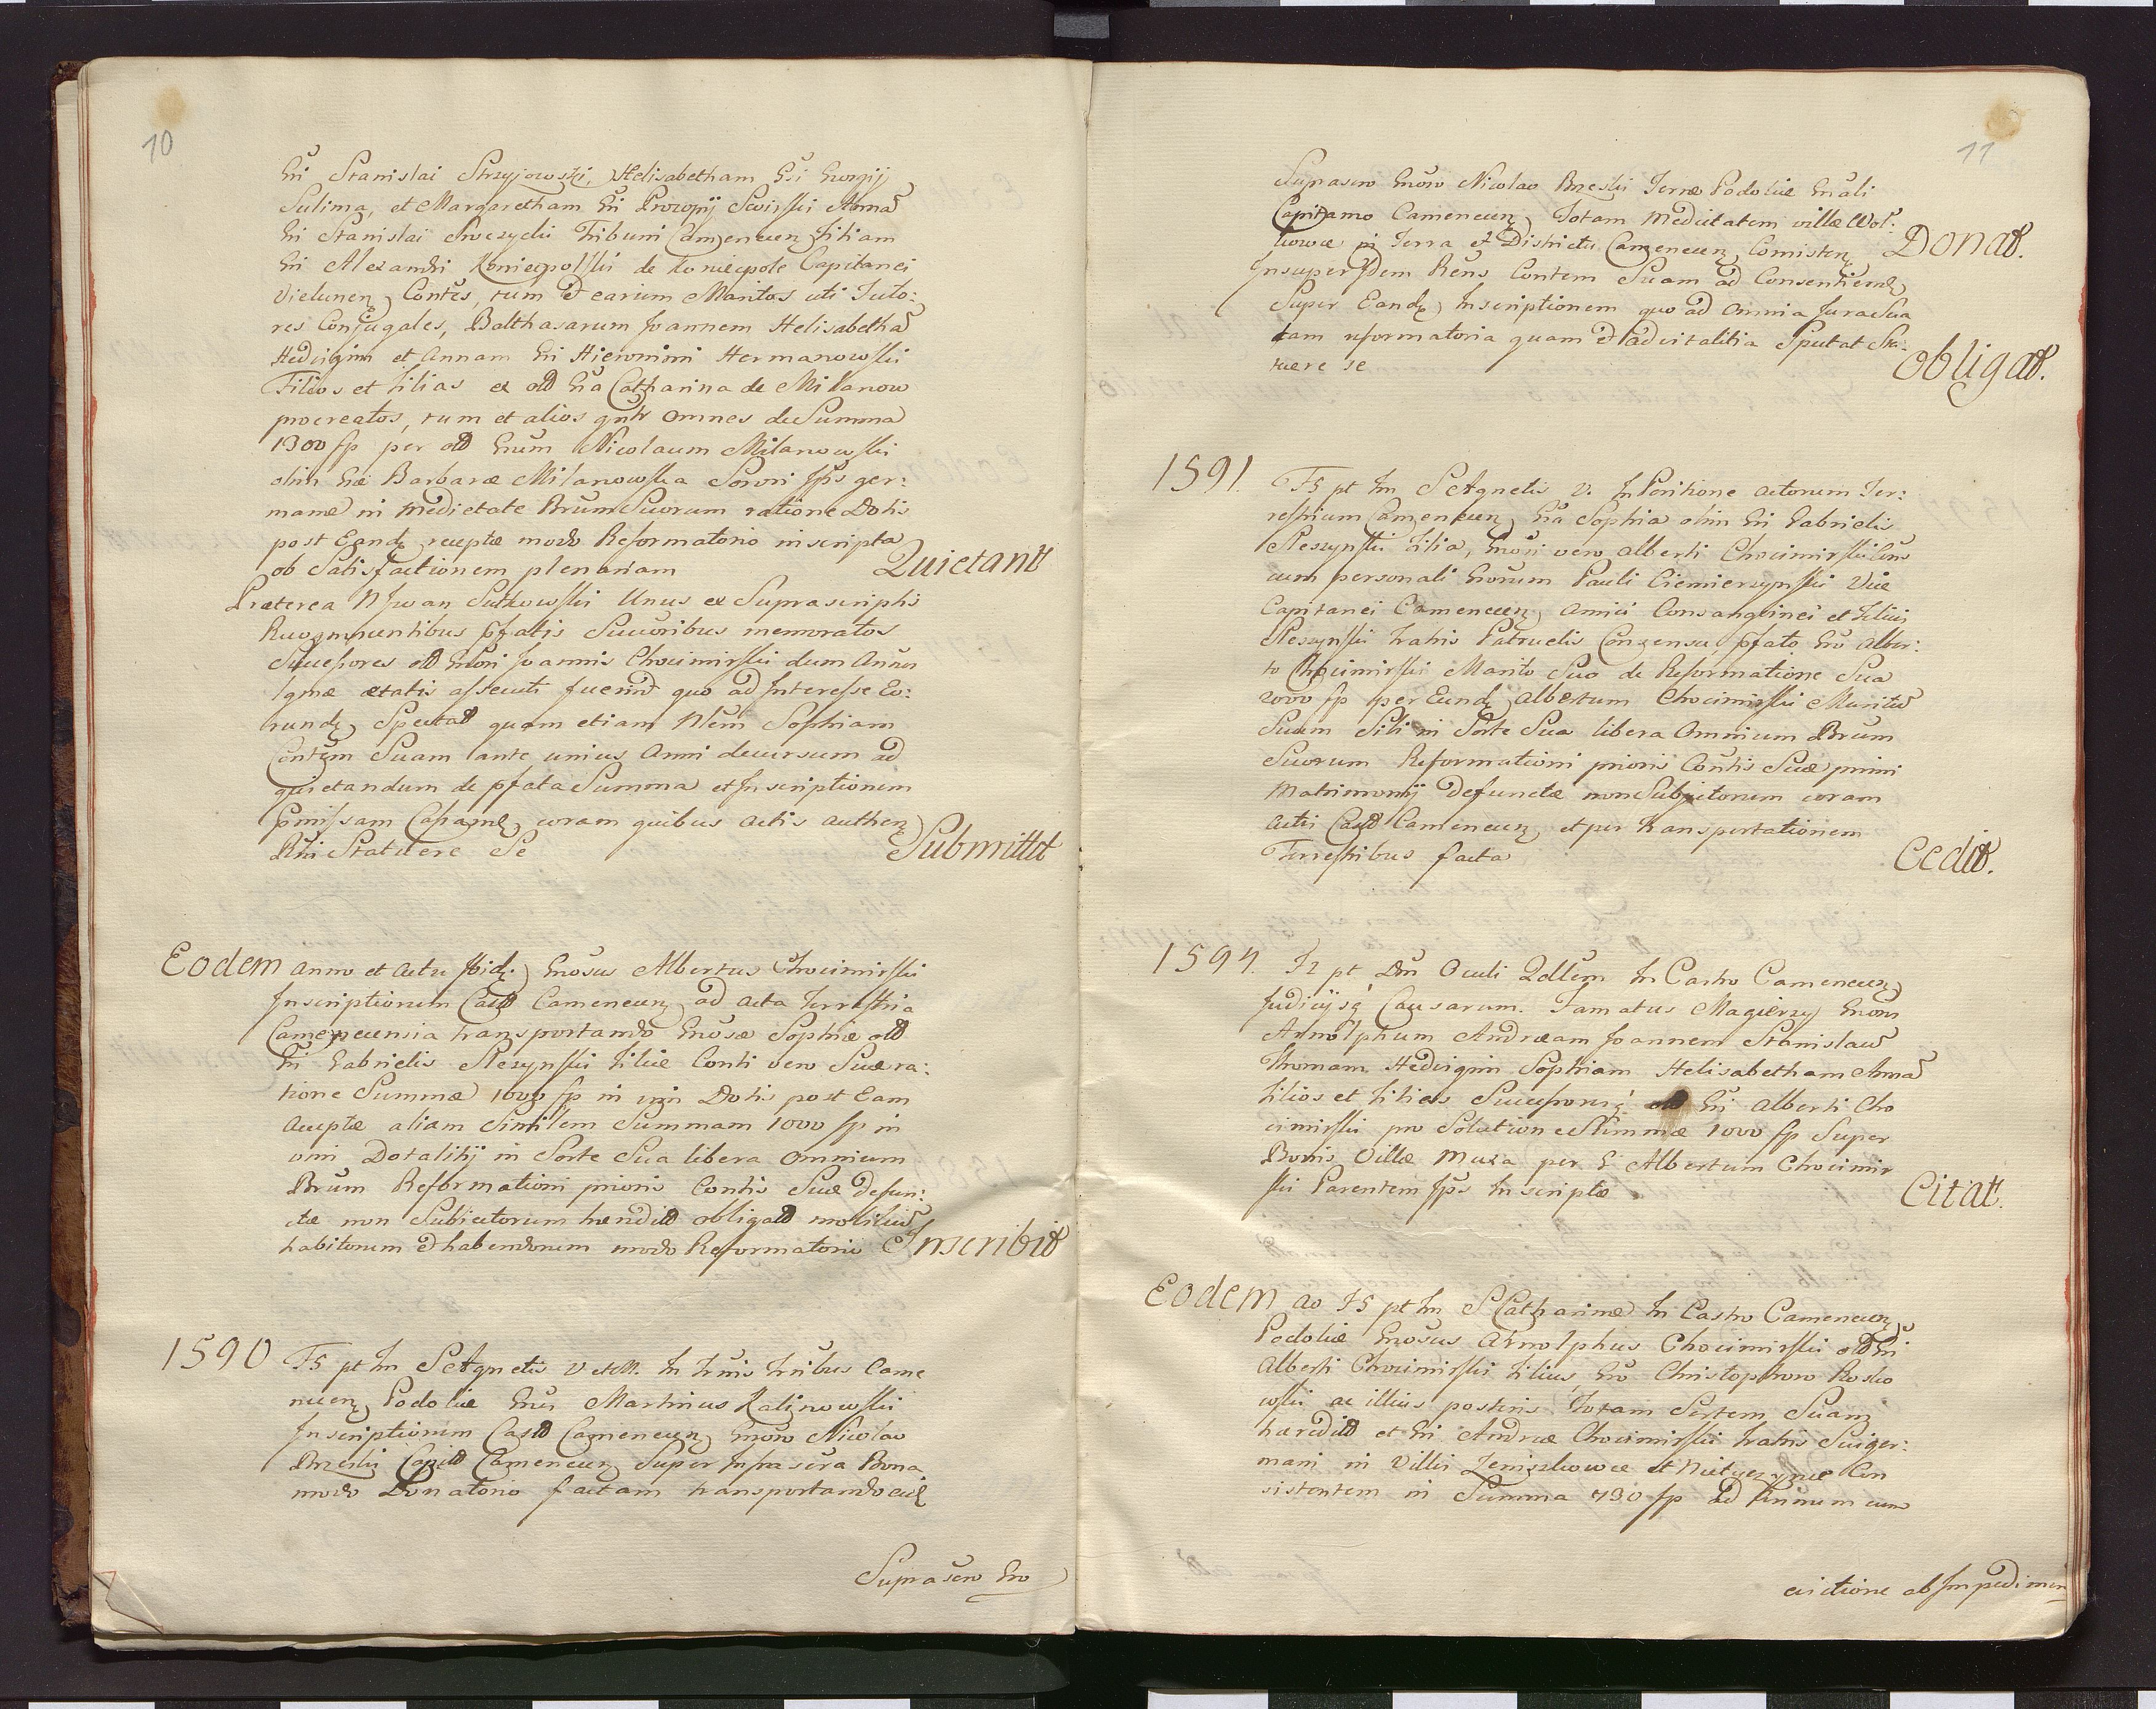 10
Gñi Stanislai Strzyjowski, Helisabetham Gñi Georgij
Sulima, et Margaretham Gñi Procopij Swirski Annam
Gñi Stanislai Tribuni Camenecen Filiam
Gñi Alexandri Koniecpolski de Koniecpole Capitanei
Vielunen Contes, tum et earum Maritos uti Tuto:
res Conjugales, Balthasarum Joannem Helisabetham
Hedvigim et Annam Gñi Hieronimi Hermanowski
Filios et Filias ex olim Gña Catharina de Milanow
procreatos, tum et alios omnes de Summa
1300 fp per olim Gñum Nicolaum Milanowski
olim Gñæ Barbaræ Milanowska Sorori Jps ger:
manæ in Medietate Bñum Suorum ratione Dotis
post Eand receptæ modo Reformatorio inscripta
ob Satisfactionem plenariam Quietant
Præterea N Iwan Sutkowski Unus ex Suprascriptis
pfatis Succoribus memoratos
Successores olim Gñosi Joannis Chocimirski dum Annos
lgmæ ætatis assecuti fuerint quo ad Interesse Eo:
rund Spectat quam etiam Nlem Sophiam
Contem Suam ante unius Anni decursum ad
quietandum de pfata Summa et Inscriptionem
pmissam coram quibus actis authen
Rñi Statuere Se Submittit
Eodem anno et actu Ibid. Gñosus Albertus Chocimirski
Inscriptionem Cast Camenecen ad acta Terrestria
Camenecensia transportando Gñosæ Sophiæ olim
Gñi Gabrielis Slezynski Filiæ Conti vero Suæ ra:
tione Summæ 1000 fp in vim Dotis post Eam
acceptæ aliam Similem Summam 1000 fp in
vim Dotalitij in Sorte Sua libera omnium
Bñum Reformationi prioris Contis Suæ defun:
ctæ non Subiectorum obligat mobilium
habitorum et habendorum modo Reformatorio Inscribit
1590 F5 pt Fm S Agnetis V et M. In Came
necen Podoliæ Gñus Martinus Kalinowski
Inscriptionem Cast Camenecen Gñoso Nicolao
Brzeski Capit Camenecen Super Infrascra Bona
modo Donatorio factam transportando eid
Suprascro Gño
11
Suprascro Gñoso Nicolao Brzeski Terræ Podoliæ Gñali
Capitaneo Camenecen Totam Medietatem villæ Wol:
kowce in Terra et Districtu Camenecen Consisten Donat.
Insuper Idem Rens Contem Suam ad Consentiend
Super Eand Inscriptionem quo ad omnia Jura Sua
tam reformatoria quam et advitalitia Sta:
tuere se obligat.
1591. F5 pt Fm S Agnetis V. In Positione actorum Ter:
restrium Camenecen Gña Sophia olim Gñi Gabrielis
Slezynski Filia, Gñosi vero Alberti Chocimirski Cons
cum personali Gñorum Pauli Ciemierzynski Vice
Capitanei Camenecen amici Consanguinei et Filij
Slezynski Fratris Patruelis Consensu, pfato Gño Alber:
to Chocimirski Marito Suo de Reformatione Sua
2000 fp per Eund Albertum Chocimirski Maritum
Suum Sibi in Sorte Sua libera Omnium Bñum
Suorum Reformationi prioris Contis Suæ primi
Matrimonij defunctæ non Subjectorum coram
actis Cast Camenecen et per transportationem
Terrestribus facta Cedit.
1594. F2 pt Dñ Oculi In Castro Camenecen
Judicijsq Causarum. Famatus Magierzy Gñosos
Arnolphum Andræam Joannem Stanislaum
Thomam Hedvigim Sophiam Helisabetham Annam
Filios et Filias Successoresq olim Gñi Alberti Cho
cimirski pro Solutione Summæ 1000 fp Super
Bonis Villæ Muxa per G Albertum Chocimir
ski Parentem Jps Inscriptæ Citat.
Eodem ao F5 pt Fm S Catharinæ In Castro Camenecen
Podoliæ Gñosus Arnolphus Chocimirski olim Gñi
Alberti Chocimirski Filius, Gño Christophoro Rosko
wski ac illius posteris Totam Sortem Suam
hæredit et Gñi Andreæ Chocimirski Fratris Sui ger:
mani in Villis Zeniszkowce et Con
sistentem in Summa 730 fp ad Annum cum
evictione ab Impedimen